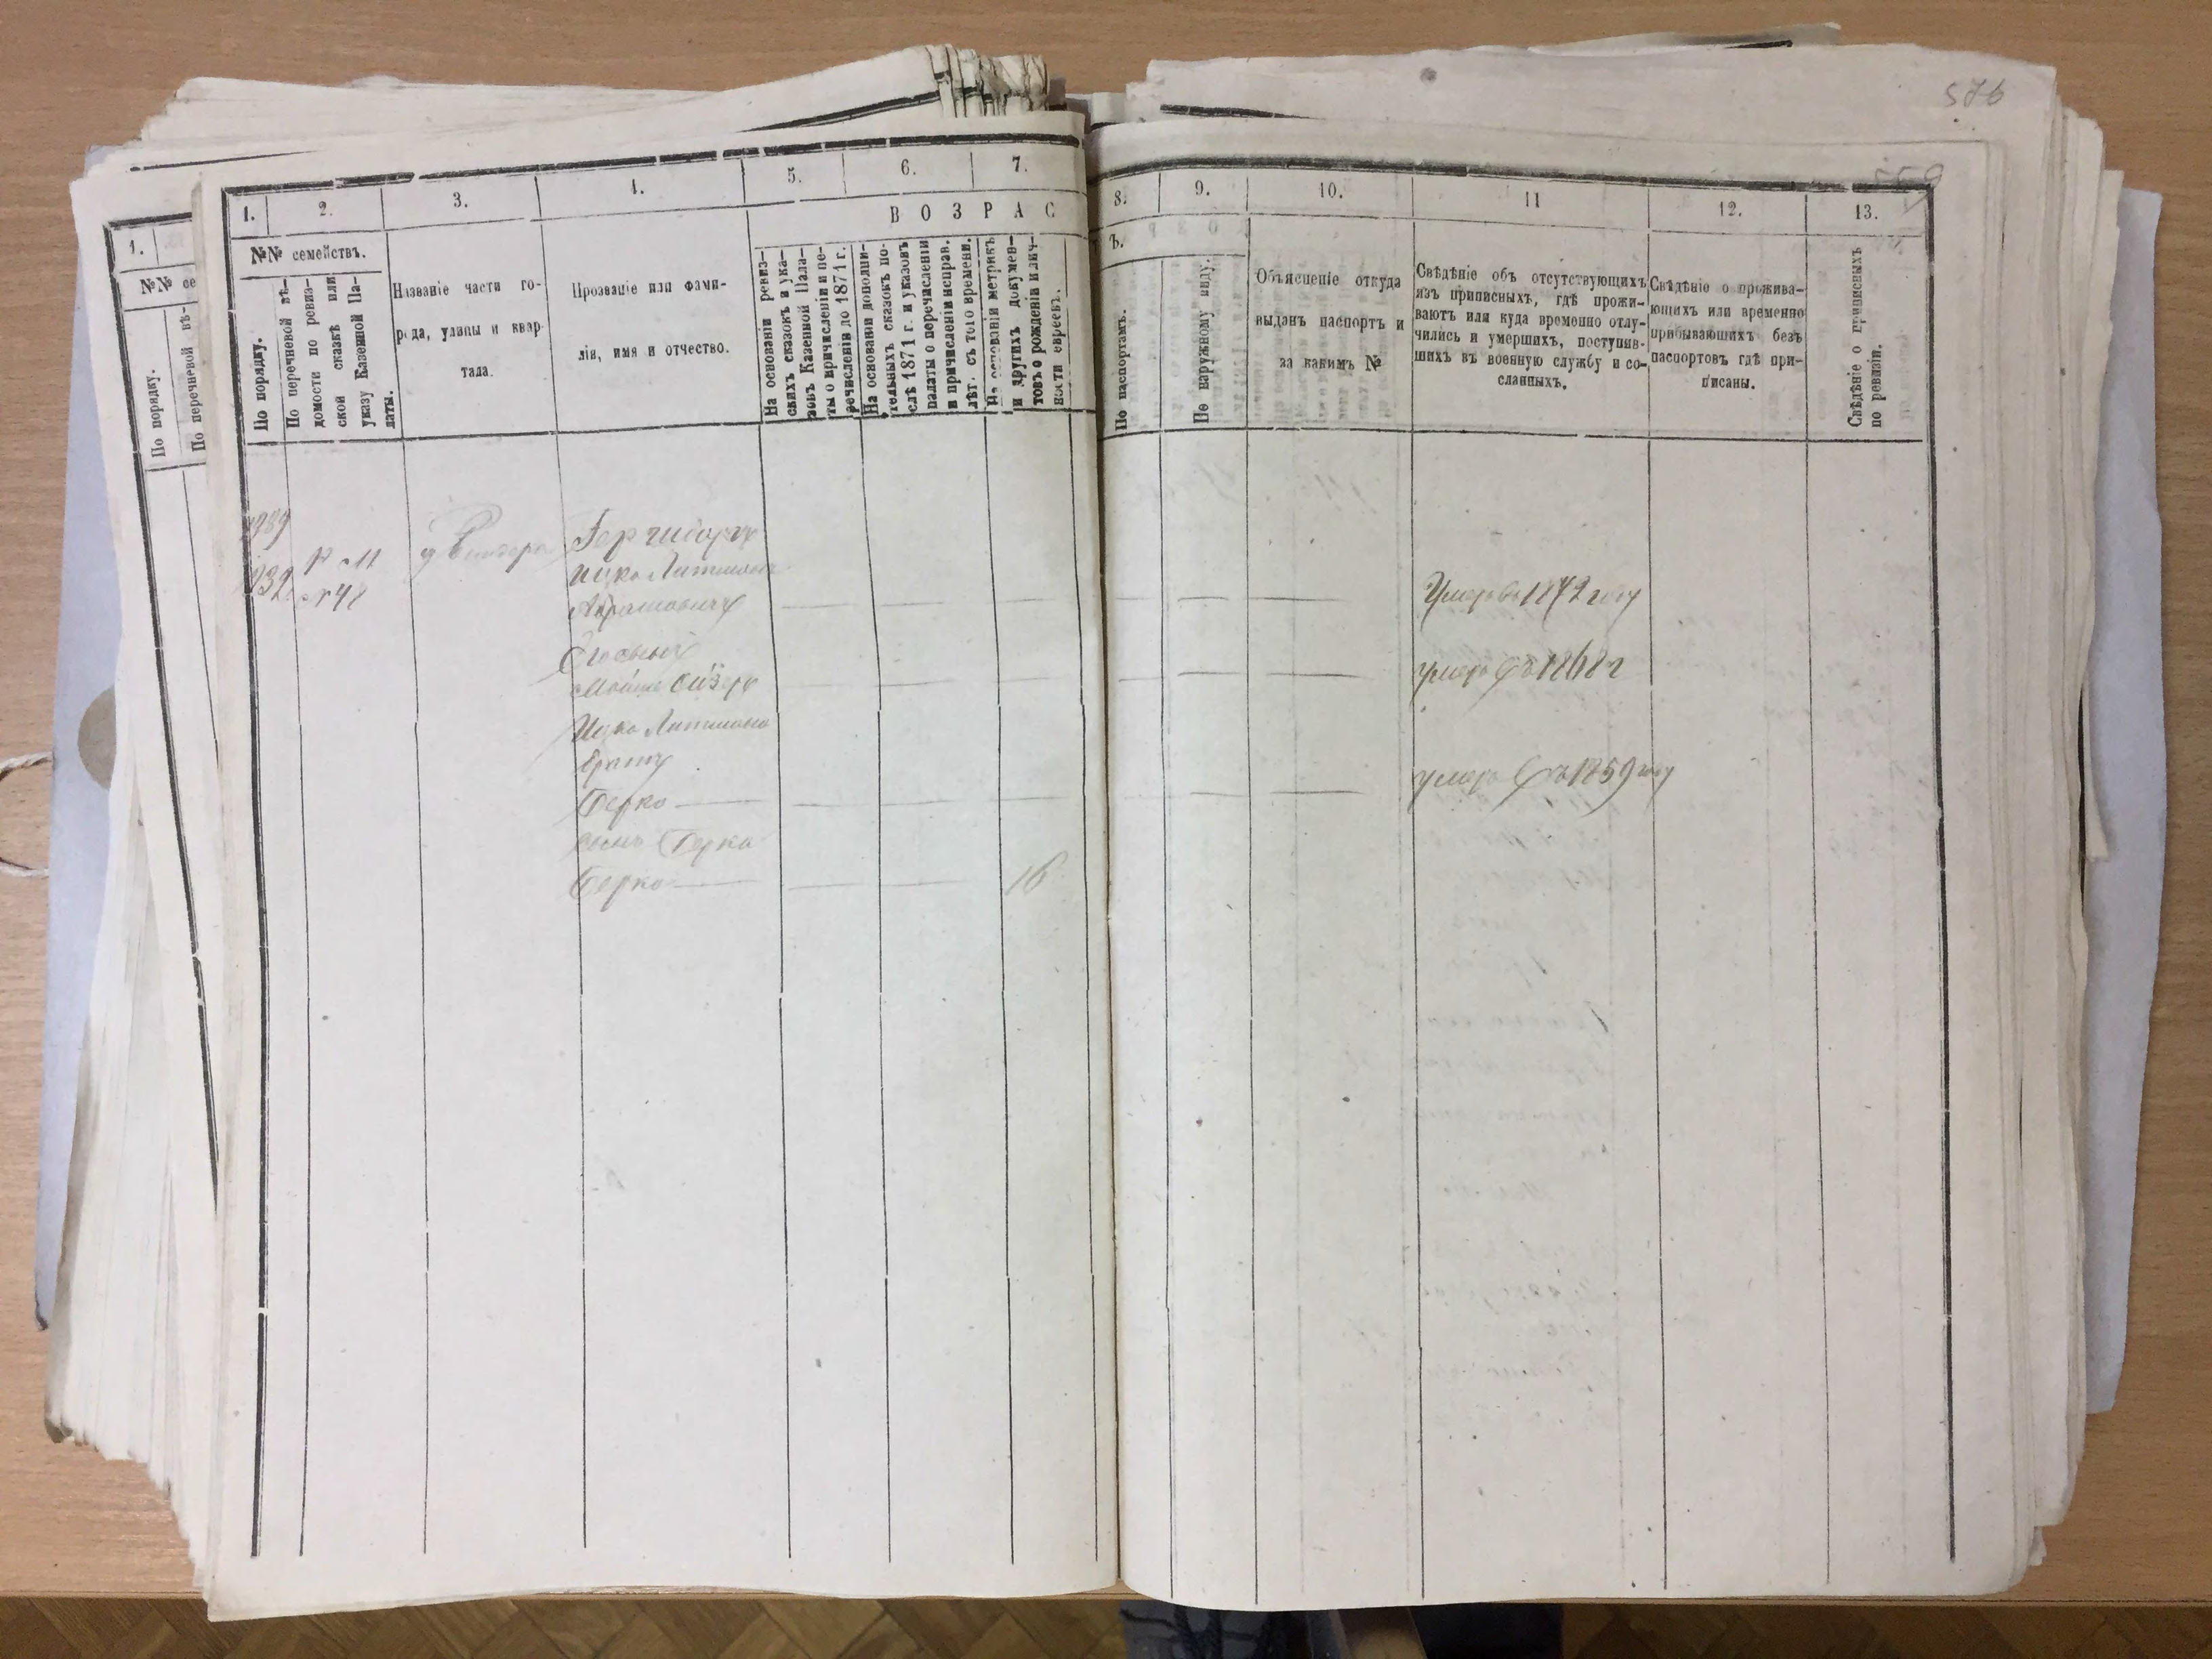 576
559
1. 2. 3. 4. 5. 6. 7. 8. 9. 10. 11 12. 13.
ВОЗРАС
Ъ.
№№ семействъ.
По порядку.
По перечневой вѣ-
домости по ревиз-
ской сказкѣ или
указу Казенной Па-
латы.
Названіе части го-
рода, улицы и квар-
тала.
Прозваніе или фами-
лія, имя и отчество.
На основаніи ревиз-
скихъ сказокъ и ука-
зовъ Казенной Пала-
ты о причисленіи и пе-
речисленіи до 1871 г.
На основаніи дополни-
тельныхъ сказокъ по-
слѣ 1871 г. и указовъ
палаты о перечисленіи
и причисленіи исправ.
лѣт. съ того времени.
На основаніи метрикъ
и другихъ докумен-
товъ о рожденіи и лич-
ности евреевъ.
По паспортамъ.
По наружному виду.
Объясненіе откуда
выданъ паспортъ и
за какимъ №
Свѣдѣніе объ отсутствующихъ
изъ приписныхъ, гдѣ прожи-
ваютъ или куда временно отлу-
чились и умершихъ, поступив-
шихъ въ военную службу и со-
сланныхъ.
Свѣдѣніе о прожива-
ющихъ или временно
прибывающихъ безъ
паспортовъ гдѣ при-
писаны.
Свѣдѣніе о приписныхъ
по ревизіи.
1.
№№ се
По порядку.
По перечневой вѣ-
932
№48
Ицко Литманъ
Абрамовичъ
Умеръ въ 1872 году
Его сынъ
Мойше Лйзеръ
умеръ въ 1868 г
Ицка Литмана
братъ
Берко
умеръ въ 1859 году
сынъ Берка
Берко 16